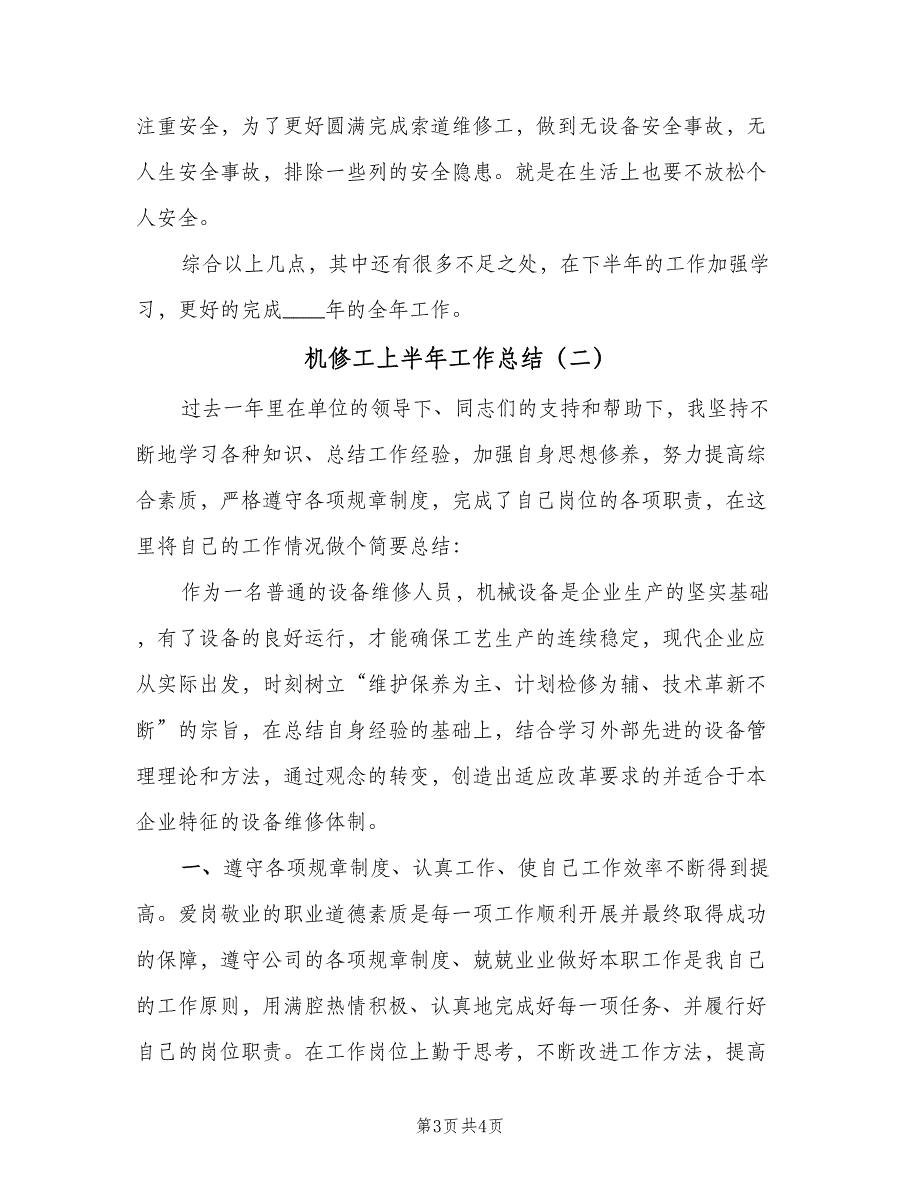 注重安全，为了更好圆满完成索道维修工，做到无设备安全事故，无
人生安全事故，排除一些列的安全隐患。就是在生活上也要不放松个
人安全。
综合以上几点，其中还有很多不足之处，在下半年的工作加强学
习，更好的完成____年的全年工作。
机修工上半年工作总结（二）
过去一年里在单位的领导下、同志们的支持和帮助下，我坚持不
断地学习各种知识、总结工作经验，加强自身思想修养，努力提高综
合素质，严格遵守各项规章制度，完成了自己岗位的各项职责，在这
里将自己的工作情况做个简要总结：
作为一名普通的设备维修人员，机械设备是企业生产的坚实基础
，有了设备的良好运行，才能确保工艺生产的连续稳定，现代企业应
从实际出发，时刻树立“维护保养为主、计划检修为辅、技术革新不
断”的宗旨，在总结自身经验的基础上，结合学习外部先进的设备管
理理论和方法，通过观念的转变，创造出适应改革要求的并适合于本
企业特征的设备维修体制。
一、遵守各项规章制度、认真工作、使自己工作效率不断得到提
高。爱岗敬业的职业道德素质是每一项工作顺利开展并最终取得成功
的保障，遵守公司的各项规章制度、兢兢业业做好本职工作是我自己
的工作原则，用满腔热情积极、认真地完成好每一项任务、并履行好
自己的岗位职责。在工作岗位上勤于思考，不断改进工作方法，提高
第3页共4页